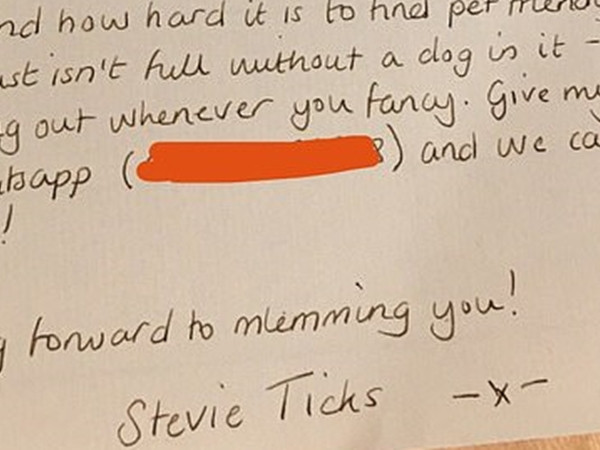 how hard it is to find pet
isn't full without a dog in it -
out whenever you fancy. Give my
( ) and we
!
forward to mlemming you!
Stevie Ticks -x-